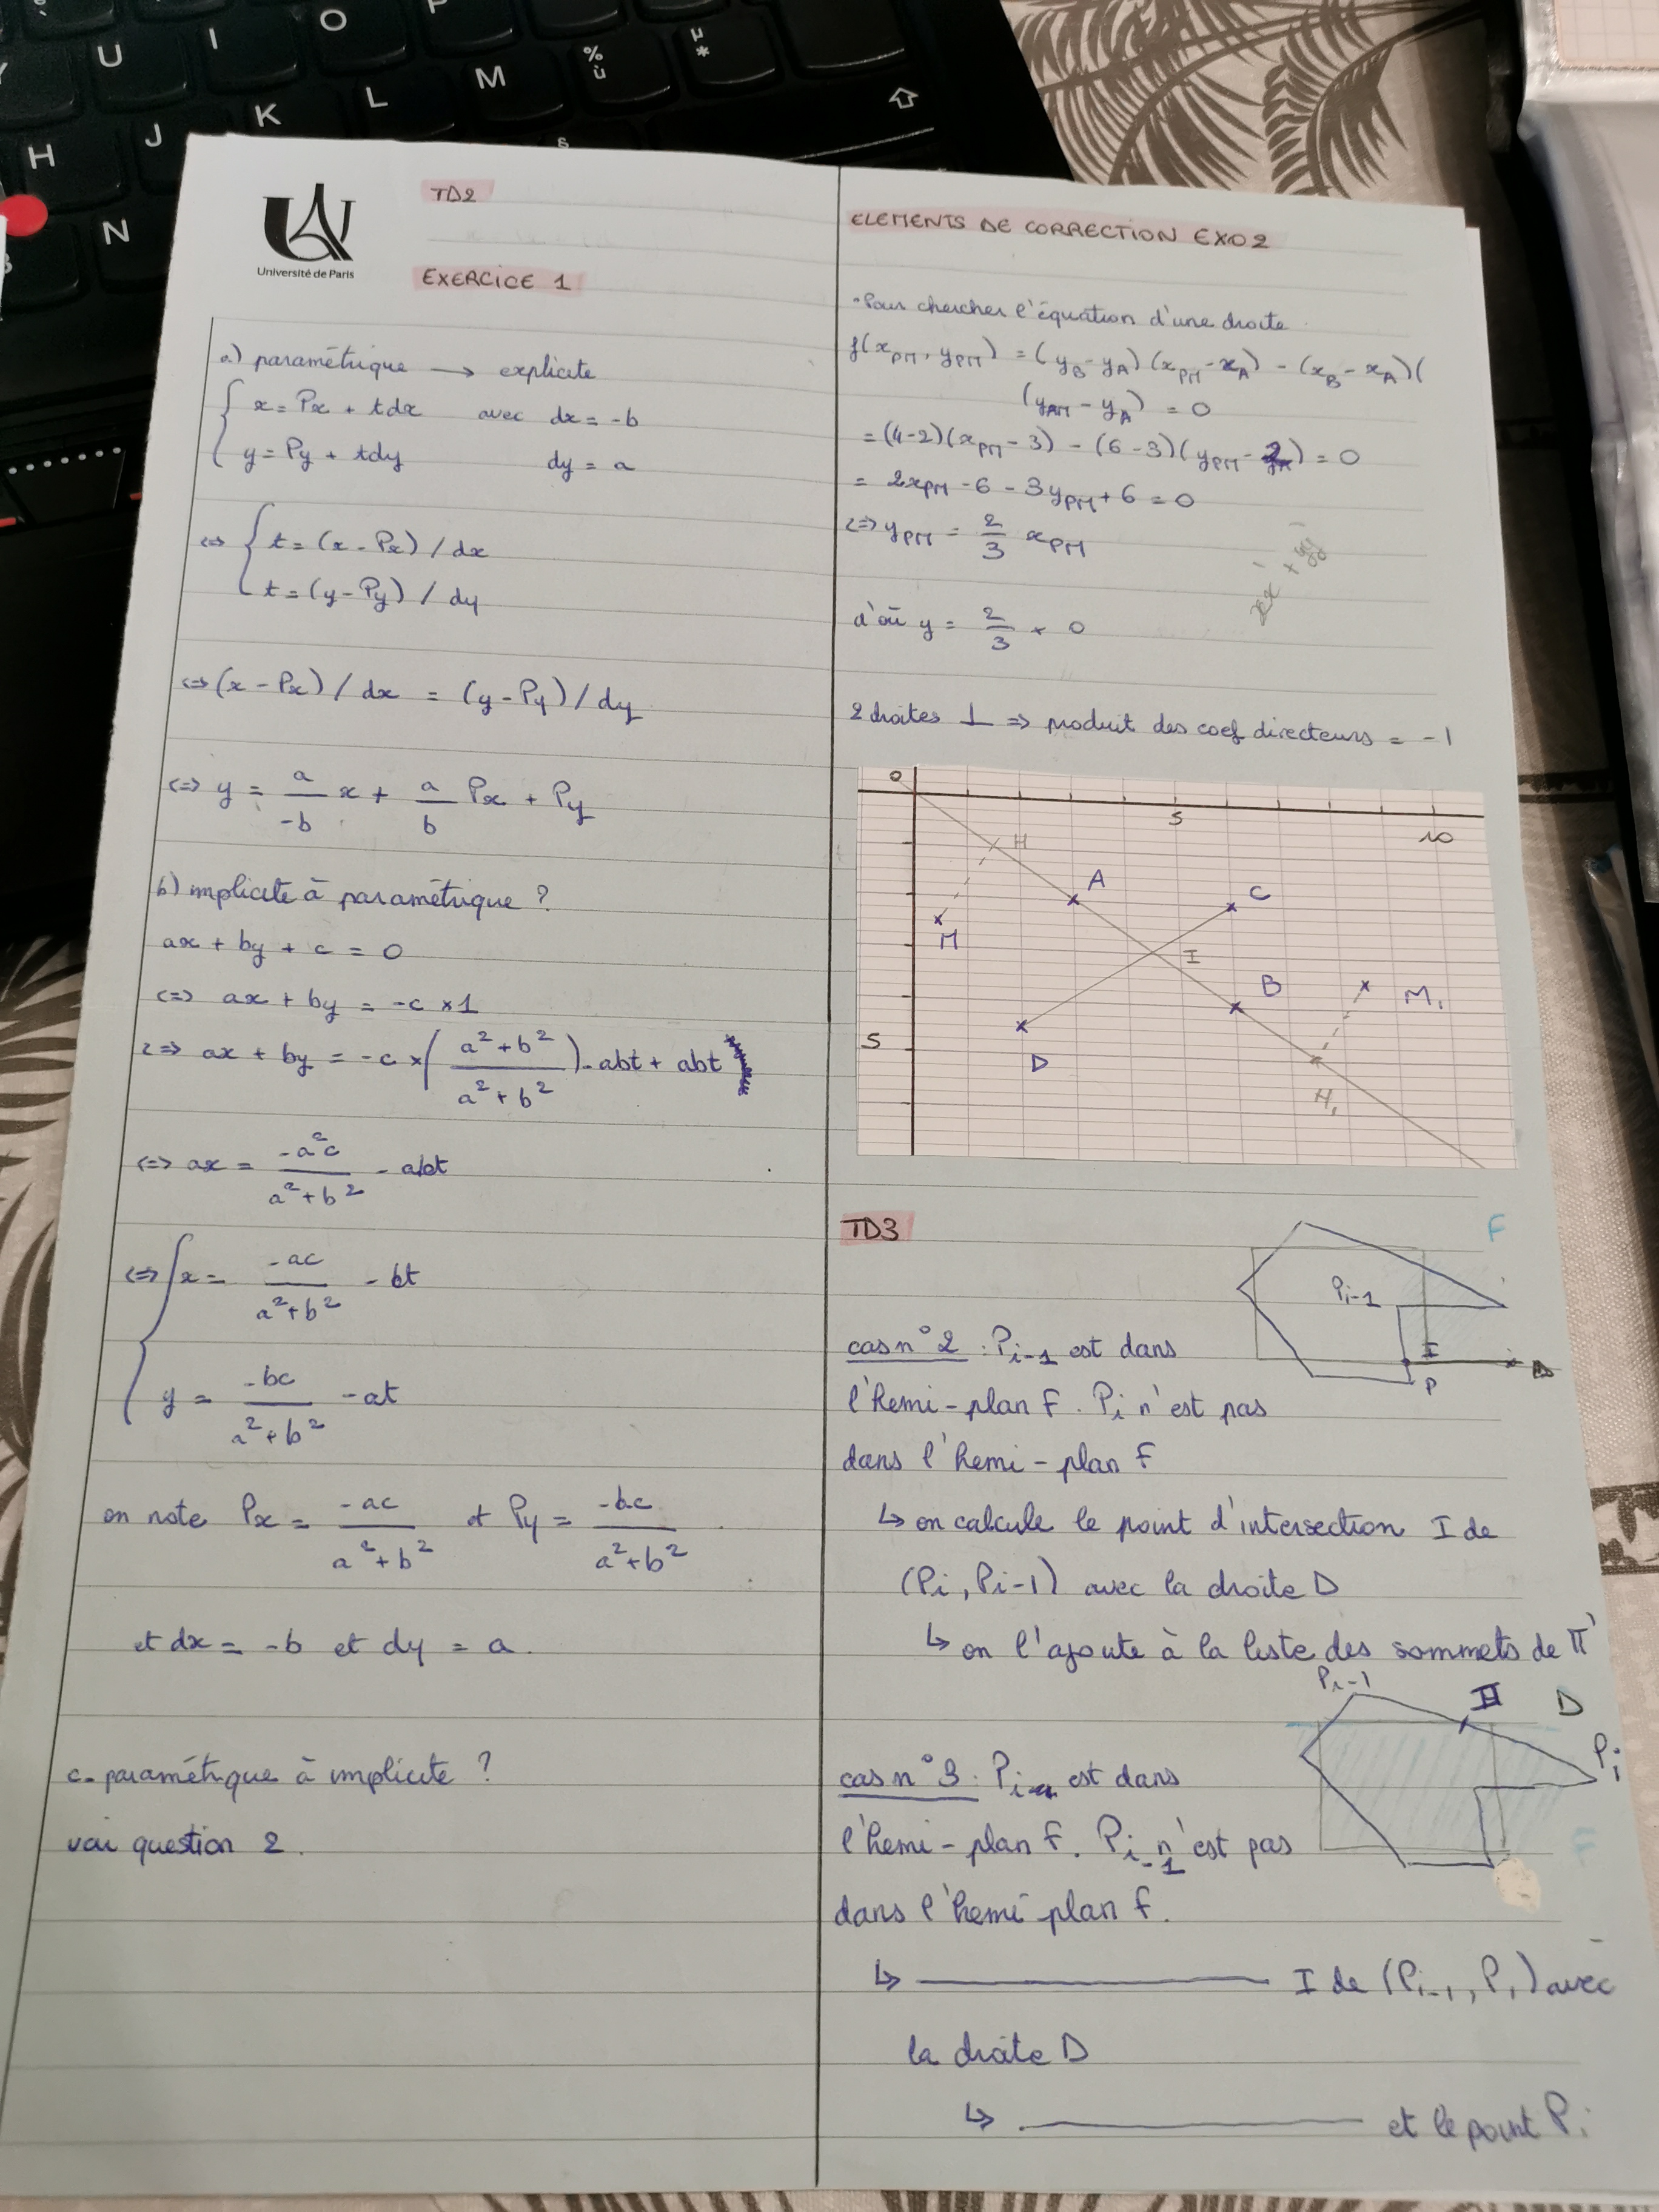 U I O P
% ù
µ *
H J K L M
N
Université de Paris
TD2
EXERCICE 1
a) paramétrique → explicite
{ x = Px + tdx avec dx = -b
y = Py + tdy dy = a
<=> { t = (x - Px) / dx
t = (y - Py) / dy
<=> (x - Px) / dx = (y - Py) / dy
<=> y = a/-b x + a/b Px + Py
b) implicite à paramétrique ?
ax + by + c = 0
<=> ax + by = -c × 1
<=> ax + by = -c × ( a² + b² / a² + b² ) - abt + abt
<=> ax = -a²c / a² + b² - abt
<=> { x = -ac / a² + b² - bt
y = -bc / a² + b² - at
on note Px = -ac / a² + b² et Py = -bc / a² + b²
et dx = -b et dy = a.
c. paramétrique à implicite ?
voir question 2.
ELEMENTS DE CORRECTION EXO2
• Pour chercher l'équation d'une droite
f(xPM, yPM) = (yB - yA)(xPM - xA) - (xB - xA)(
(yAM - yA) = 0
= (4-2)(xPM - 3) - (6-3)(yPM - 2) = 0
= 2xPM - 6 - 3yPM + 6 = 0
<=> yPM = 2/3 xPM
xx' + yy'
d'où y = 2/3 + 0
2 droites ⊥ => produit des coef directeurs = -1
0 5 10
H A C
M I
B M₁
5 D
H₁
TD3
F
Pi-1
I
P D
cas n°2 : Pi-1 est dans
l'hemi-plan F. Pi n'est pas
dans l'hemi-plan F
↳ on calcule le point d'intersection I de
(Pi, Pi-1) avec la droite D
↳ on l'ajoute à la liste des sommets de π'
Pi-1 I D
Pi
F
cas n°3 : Pi est dans
l'hemi-plan F. Pi-1 n'est pas
dans l'hemi plan F.
↳ ———— I de (Pi-1, Pi) avec
la droite D
↳ ———— et le point Pi